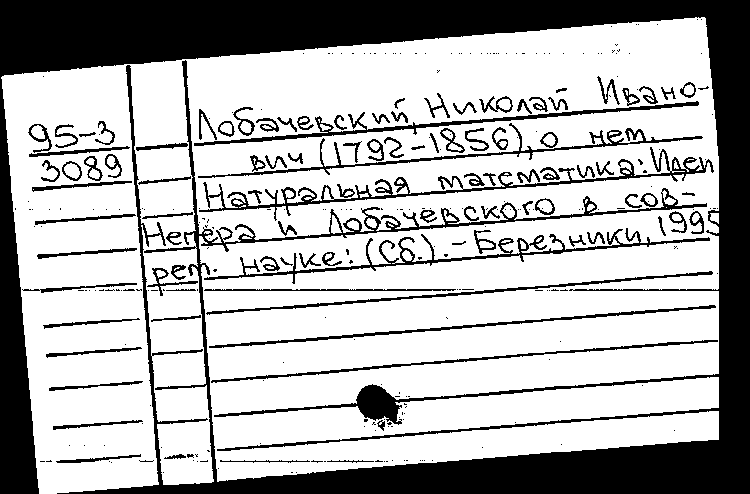 95-3
3089
Лобачевский, Николай Ивано-
вич (1792-1856), о нем.
Натуральная математика: Идеи
Непера и Лобачевского в сов-
рем. науке: (Сб.). - Березники, 1995